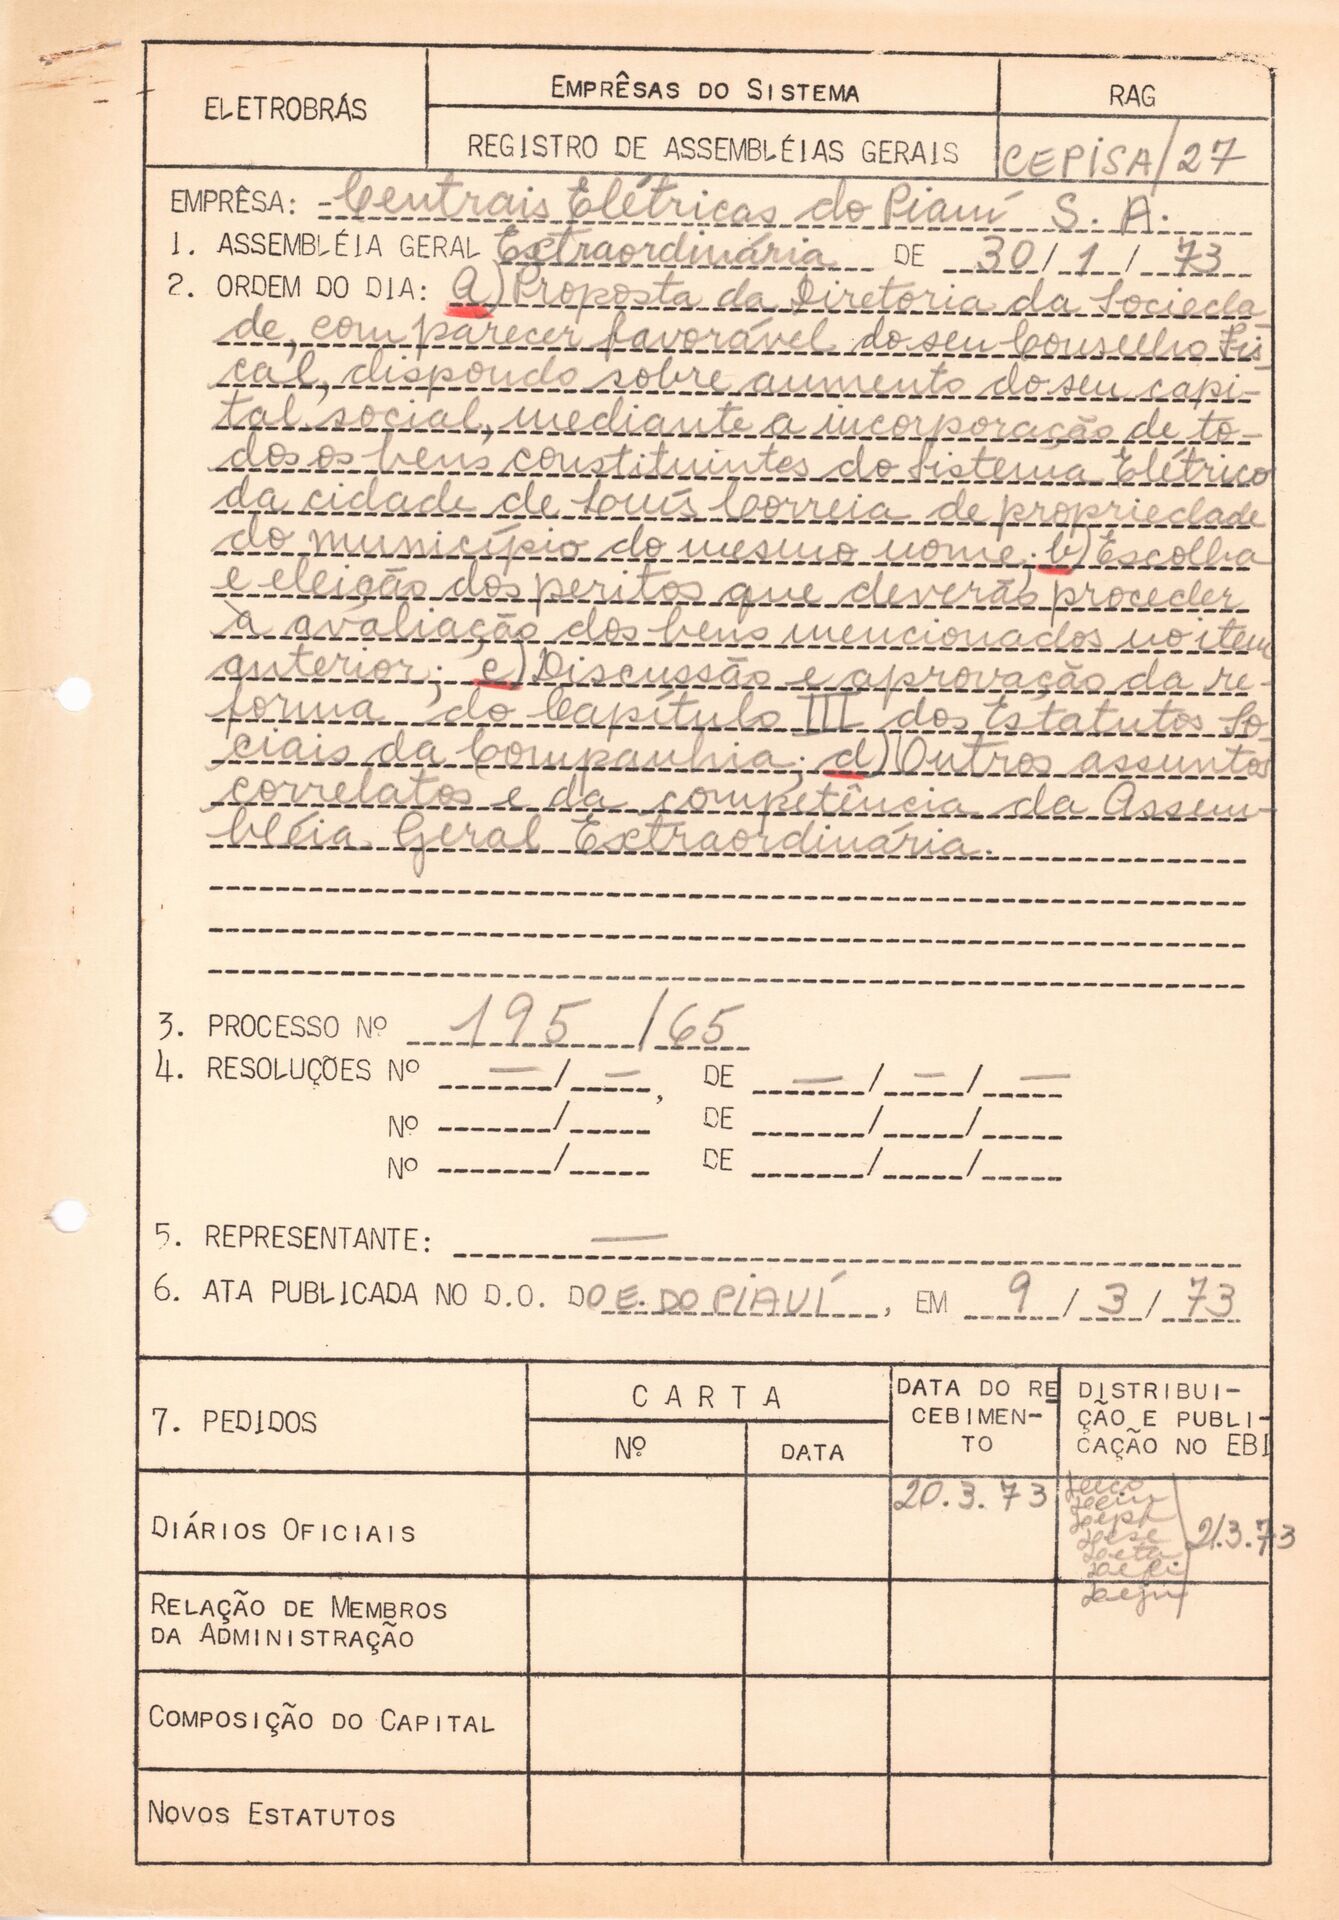 ELETROBRÁS
EMPRÊSAS DO SISTEMA
REGISTRO DE ASSEMBLÉIAS GERAIS
RAG
CEPISA/27
EMPRÊSA: Centrais Elétricas do Piauí S. A.
1. ASSEMBLÉIA GERAL Extraordinária DE 30/1/73
2. ORDEM DO DIA: a) Proposta da Diretoria da Socieda-
de, com parecer favorável do seu Conselho Fis
cal, dispondo sobre aumento do seu capi-
tal social, mediante a incorporação de to-
dos os bens constituintes do Sistema Elétrico
da cidade de Luís Correia de propriedade
do município do mesmo nome; b) Escolha
e eleição dos peritos que deverão proceder
à avaliação dos bens mencionados no item
anterior; c) Discussão e aprovação da re-
forma do Capítulo III dos Estatutos So-
ciais da Companhia; d) Outros assuntos
correlatos e da competência da Assem-
bléia Geral Extraordinária.
3. PROCESSO Nº 195/65
4. RESOLUÇÕES Nº —/—, DE —/—/—
Nº / DE / /
Nº / DE / /
5. REPRESENTANTE: —
6. ATA PUBLICADA NO D.O. DO E. DO PIAUÍ, EM 9/3/73
7. PEDIDOS
CARTA
Nº
DATA
DATA DO RE
CEBIMEN-
TO
DISTRIBUI-
ÇÃO E PUBLI-
CAÇÃO NO EBI
DIÁRIOS OFICIAIS
20.3.73
21.3.73
RELAÇÃO DE MEMBROS
DA ADMINISTRAÇÃO
COMPOSIÇÃO DO CAPITAL
NOVOS ESTATUTOS